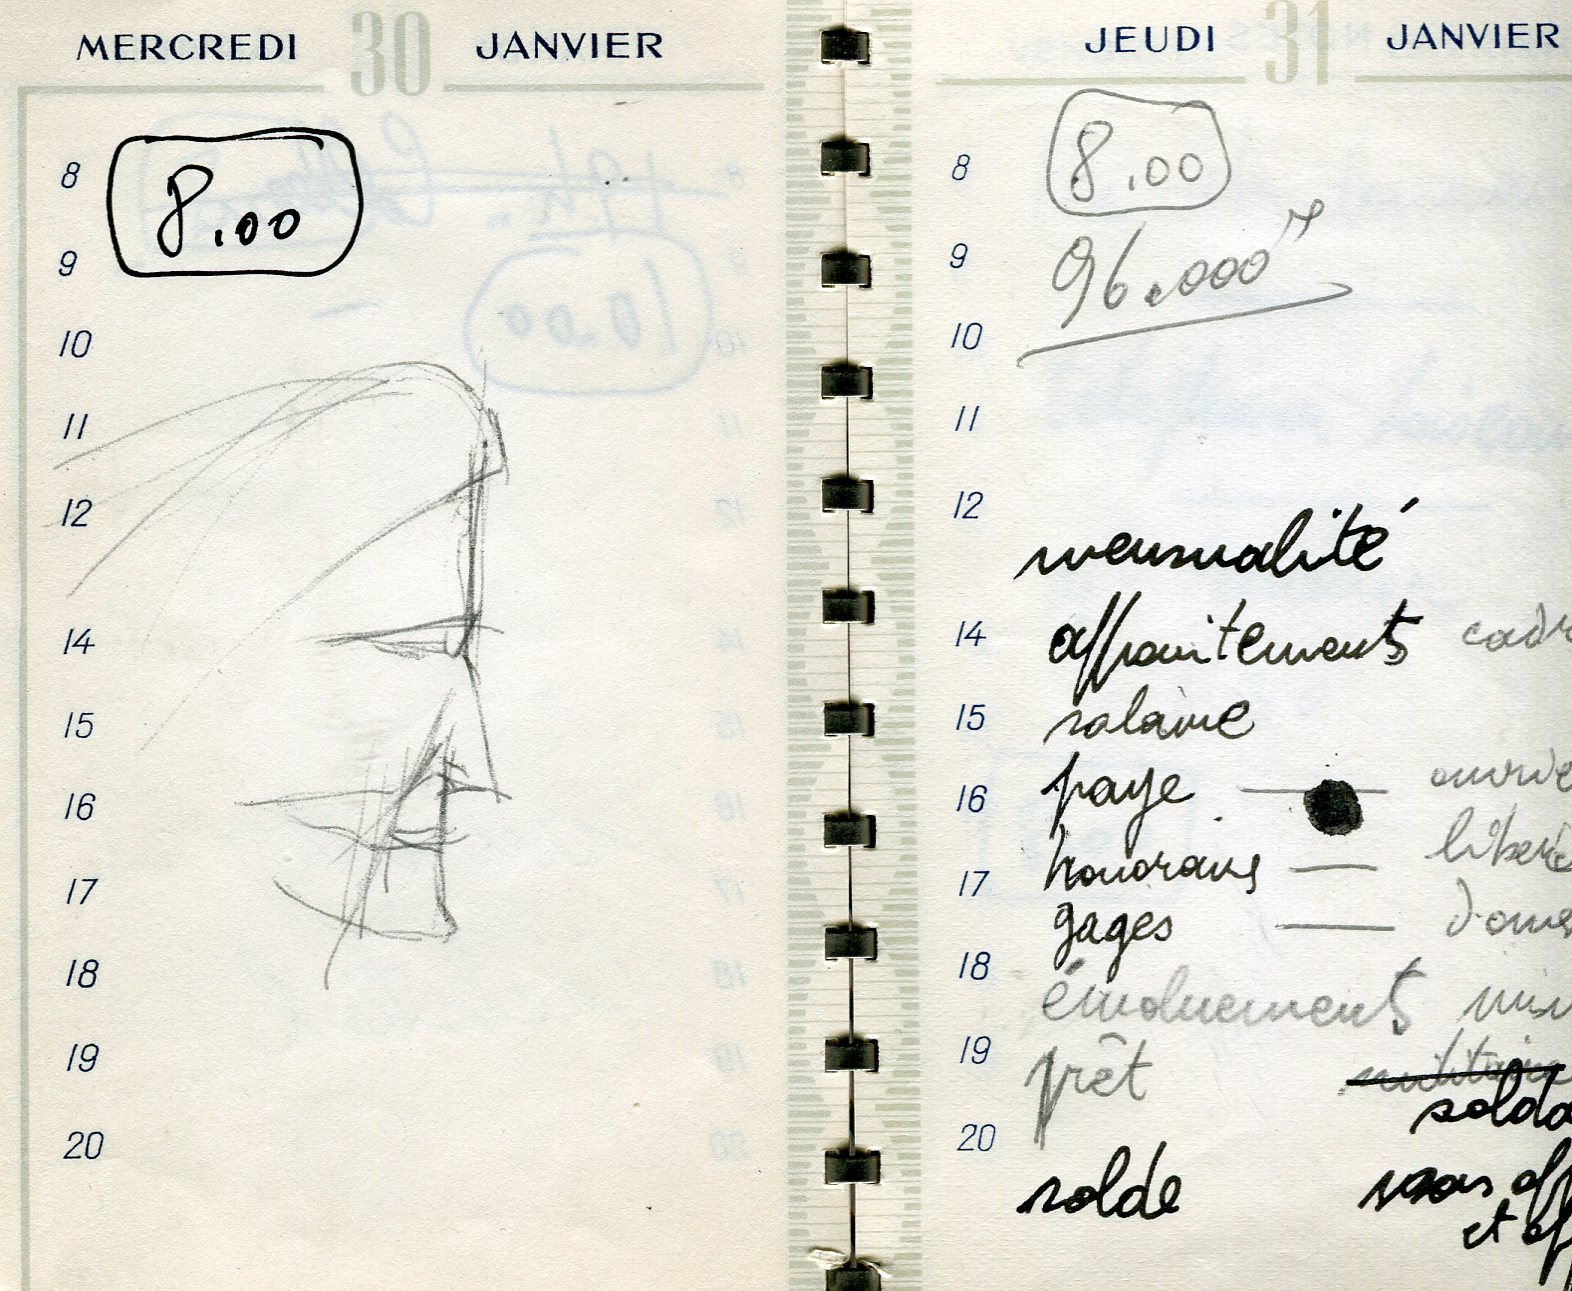 MERCREDI 30 JANVIER
8
8.00
9
10
11
12
14
15
16
17
18
19
20
10.00
JEUDI 31 JANVIER
8
8.00
9
96.000
10
11
12
mensualité
14 appointements cadr
15 salaire
16 paye — ouvrie
17 honoraires — libéra
gages — domes
18
émoluements
19 prêt militaire
solda
20
solde sous off
et off